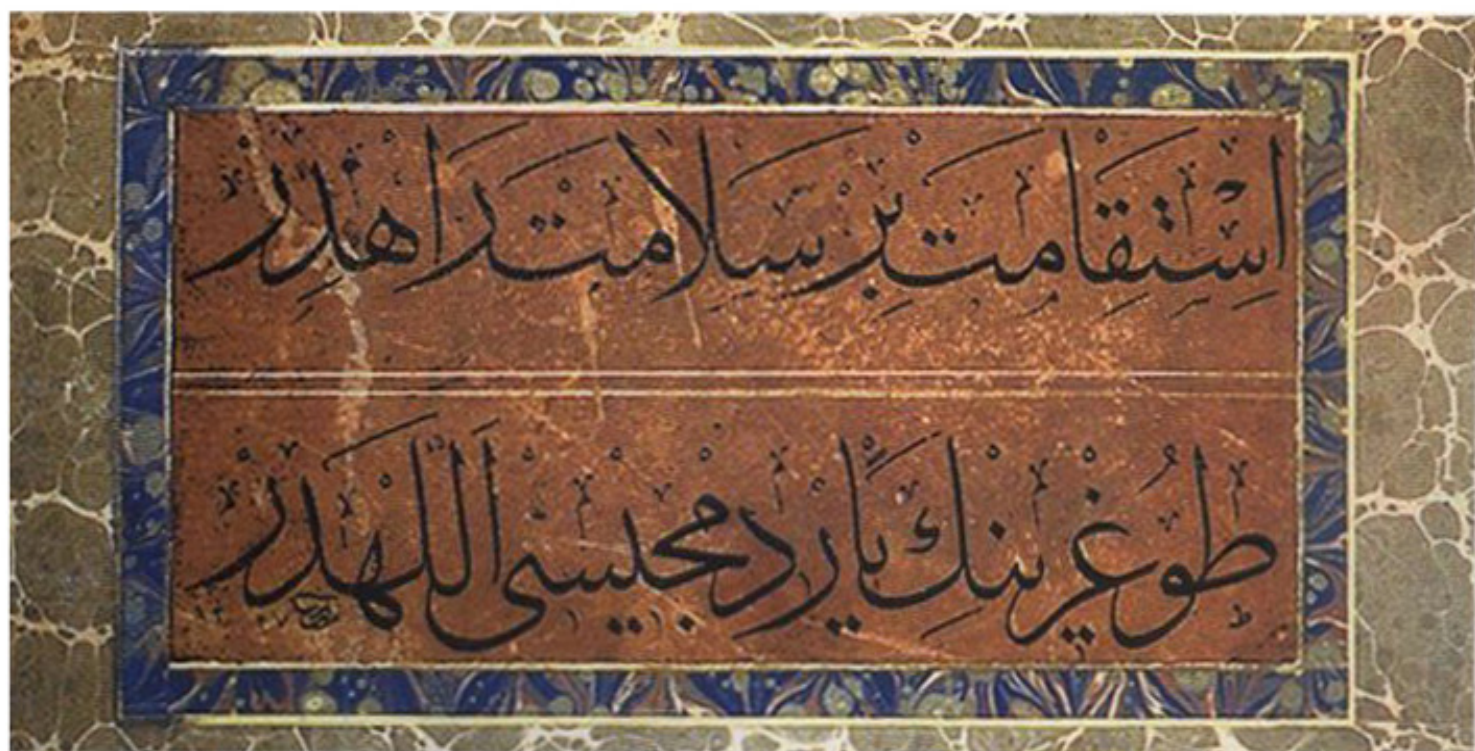 اِسْتِقَامَتْ بِرْ سَلَامَتْ رَاهِدِرْ
طُوغْرِينِكْ يَارْدِمْجِيسِى اَللّٰهدَرْ